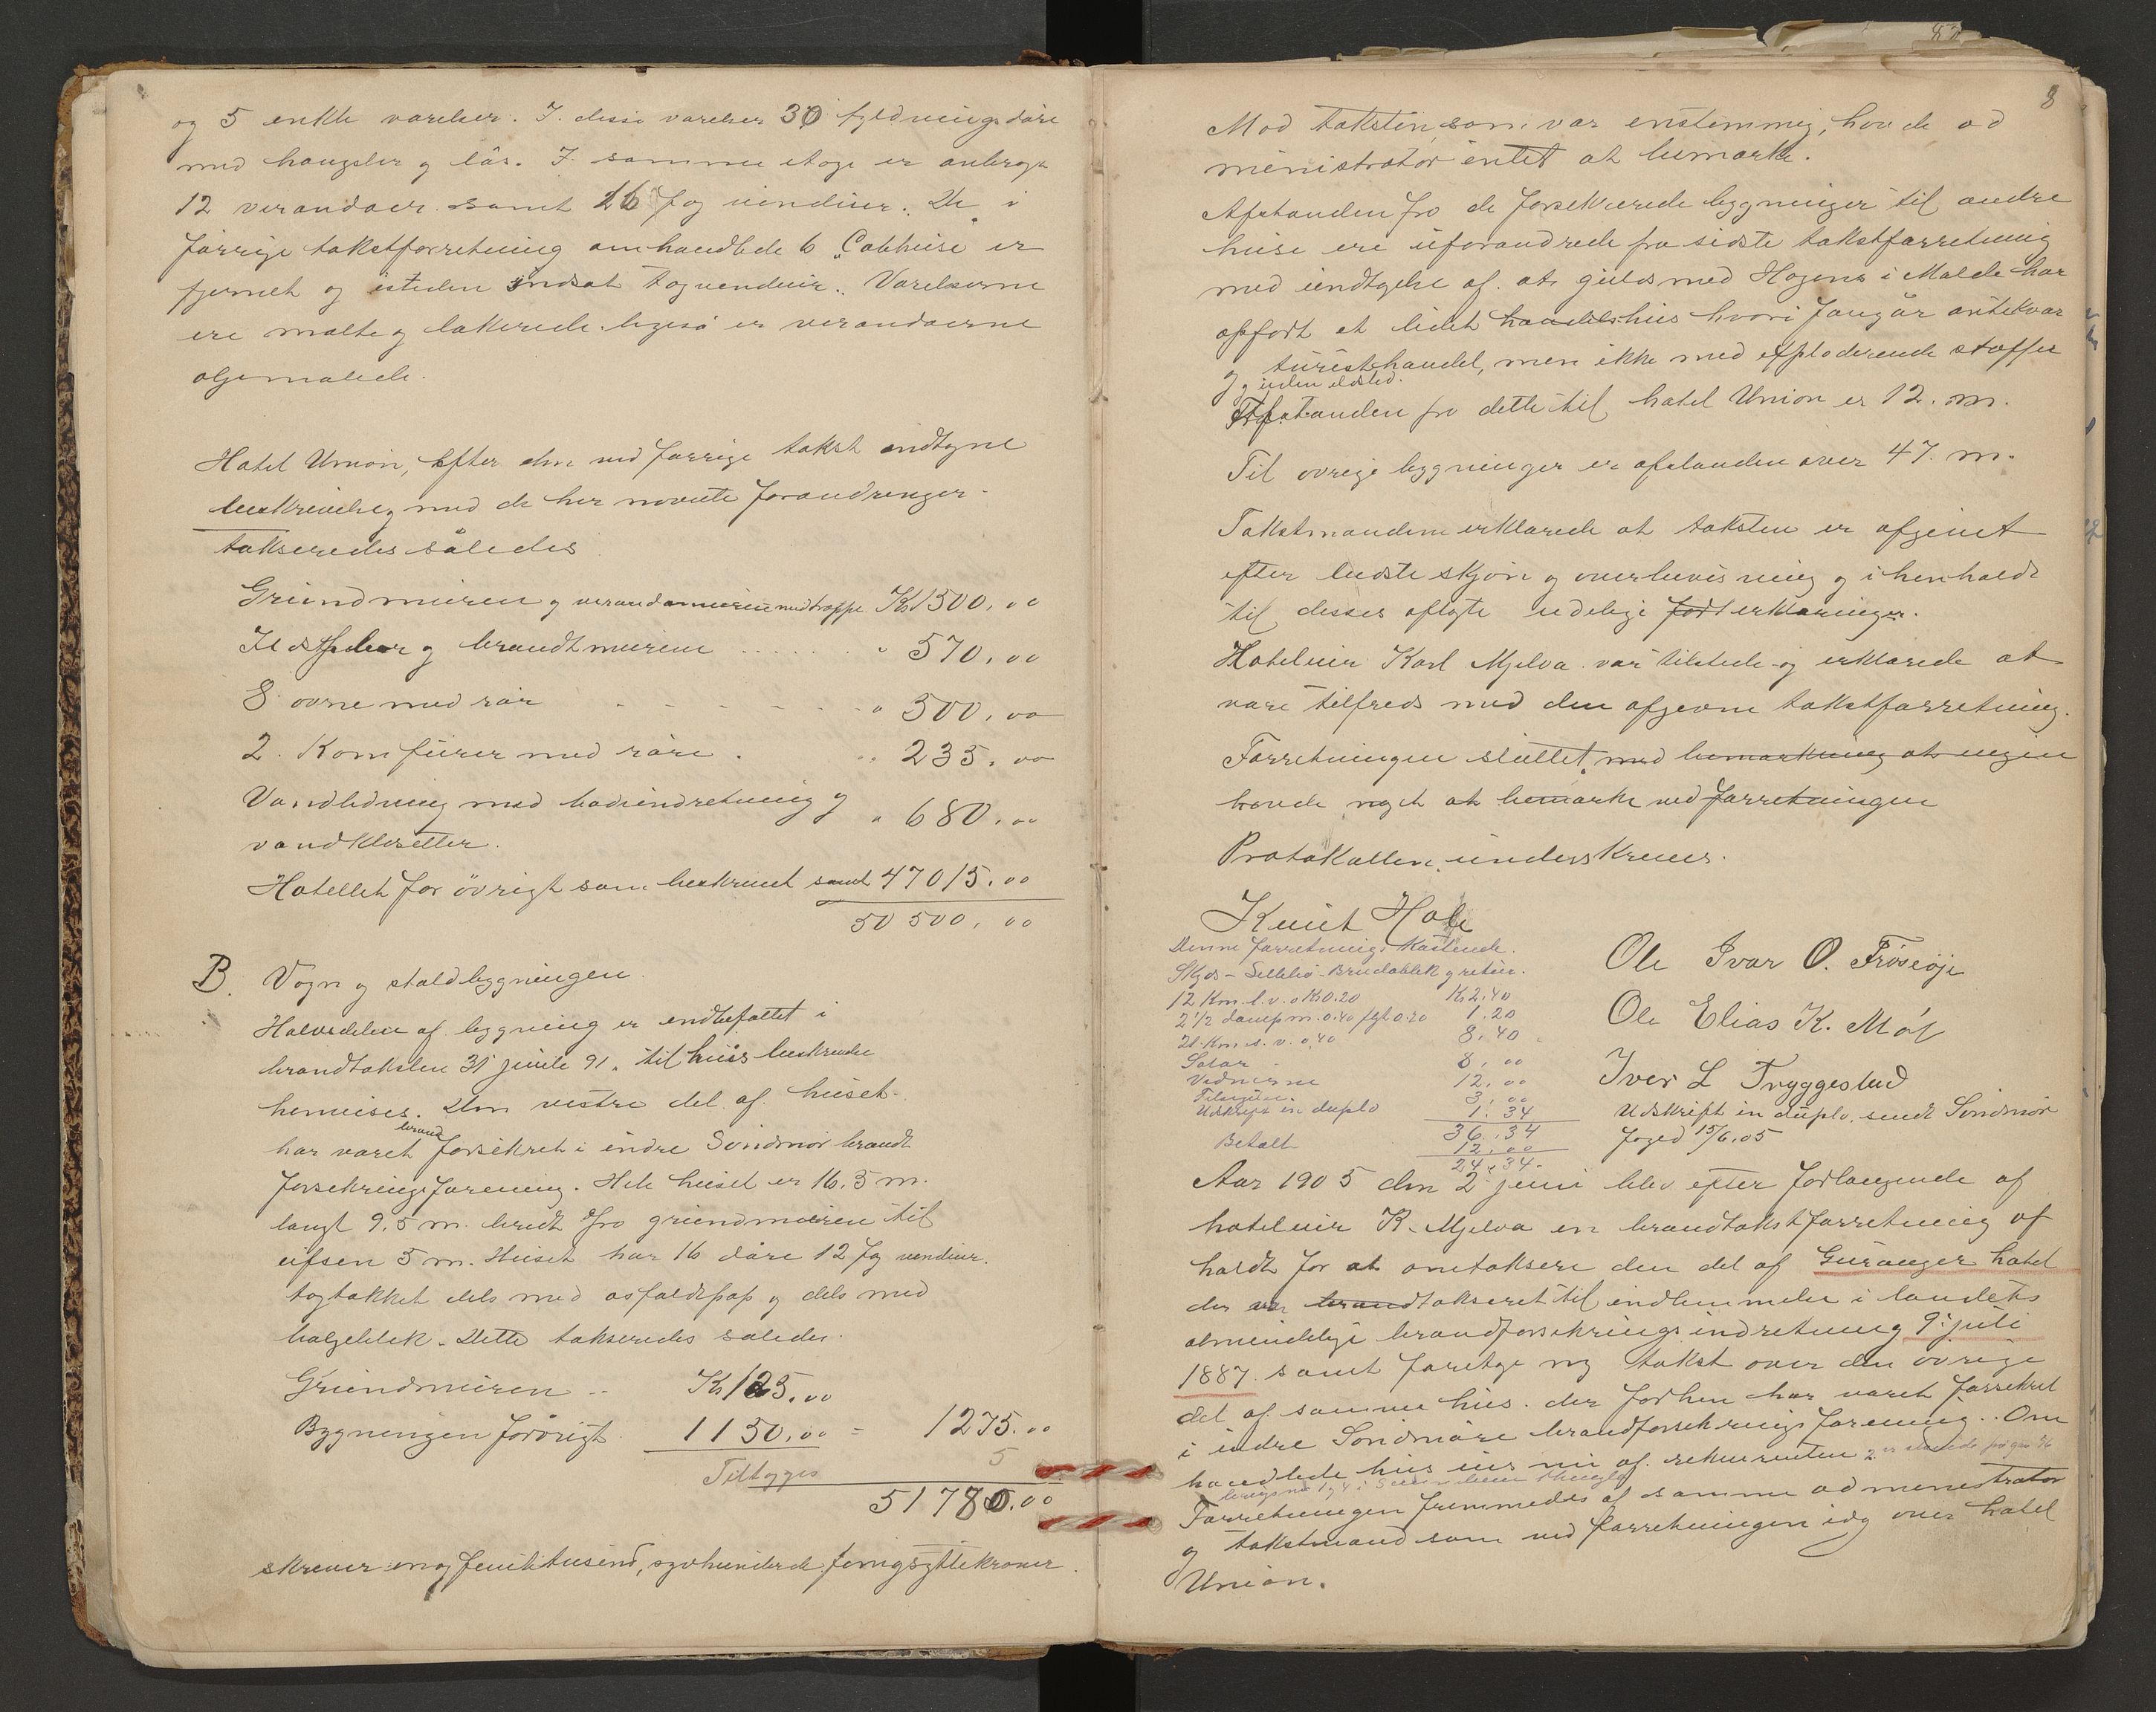 og 5 enkle værelser. I disse værelser 30 fyldningsdøre
med hængsler og lås. I samme etage er anbragt
12 verandaer samt 26 fag vinduer. De i
forrige takstforretning omhandlede 6 „Cabhuse er
fjernet og isteden indsat tagvinduer. Værelserne
ere malte og lakerede ligeså er verandaerne
oljemalede.
Hotel Union, Efter den ved forrige takst indtagne
beskrivelse og med de her nævnte forandringer
takseredes således
Grundmuren og verandamuren med trappe Kr 1500,00
Ildsteder og brandtmurene " 570,00
8 ovne med rør " 500,00
2 Komfurer med røre " 235,00
Vandledning med badeindretning og " 680,00
vandklosetter.
Hotellet for øvrigt som beskrevet samt 47015,00
50 500,00
B. Vogn og staldbygningen
Halvedelen af bygning er indbefattet i
brandtaksten 31 juli 91, til hvis beskrivelse
henvises. Den vestre del af huset
har været brand forsikret i indre Søndmør brandt
forsikringsforening. Hele huset er 16,5 m.
langt 9,5 m. bredt fra grundmuren til
ufsen 5 m. Huset har 16 døre 12 fag vinduer.
tagtækket dels med asfaldtpap og dels med
bølgeblik. Dette takseredes således.
Grundmuren Kr 125,00
Bygningen forøvrigt 1150,00 = 1275.00
Tillægges 5
51780.00
skriver en og femtitusind, syvhundrede og
8
Mod taksten, som var enstemmig, havde ad
ministrator intet at bemærke.
Afstanden fra de forsikrede bygninger til andre
huse ere uforandrede fra sidste takstforretning
med undtagelse af at guldsmed Hagens i Molde har
opført et lidet handelshus hvori foregår antikvar
og turisthandel, men ikke med exploderende stoffer
og uden ildsted.
Afstanden fra dette til hotel Union er 12. m.
Til øvrige bygninger er afstanden over 47. m.
Takstmændene erklærede at taksten er afgivet
efter bedste skjøn og overbevisning og i henhold
til deres aflagte edelige forterklæringer.
Hoteleier Karl Mjelva var tilstede og erklærede at
være tilfreds med den afgivne takstforretning.
Forretningen sluttet. med bemærkning at ingen
havde noget at bemærke ved forretningen
Protokollen underskreves.
Knut Hole
Denne forretnings Kostende.
Skyds - Sellebø - Brudablik g retur.
12 Km. l.v. a Kr 0.20 Kr 2.40
2 1/2 damp m. 0.40 fgl 0.20 1.20
21 Km s. v. 0,40 8.40
Salær 8,00
Vidnerne 12,00
3,00
Udskrift in duplo 1.34
36.34
Betalt 12,00
24,34
Ole Ivar O. Frøseøje
Ole Elias K. Møl
Iver L Tryggestad
Udskrift in duplo. sendt Søndmør
foged 15/6.05
Aar 1905 den 2 juni blev efter forlangende af
hoteleier K. Mjelva en brandtakstforretning af
holdt for at omtaksere den del af Geiranger hotel
der var brandtakseret til indlemmelse i landets
almindelige brandforsikringsindretning 9. juli
1887 samt foretage ny takst over den øvrige
del af samme hus der forhen har været forsikret
i indre Søndmøre brandforsikringsforening. Om
handlede hus eies nu af rekvirenten
Forretningen fremmedes af samme administrator
og takstmænd som ved forretningen idag over hotel
Union.